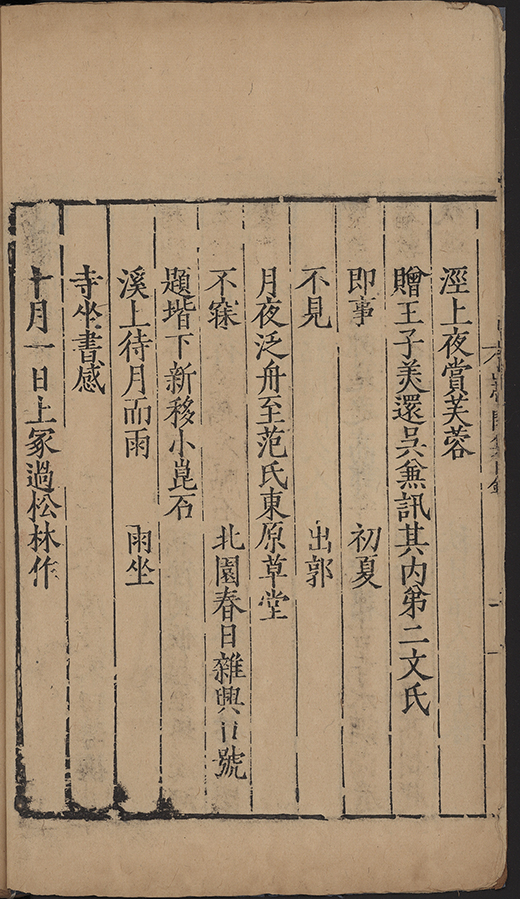 溼上夜賞芙蓉
贈王子美還吳兼訊其內弟二文氏
即事　初夏
不見　出郭
月夜泛舟至范氏東原草堂
不寐　北園春日雜興　號
題堦下新移小崑石
溪上待月而雨　雨坐
寺坐書感
十月一日上冢過松林作